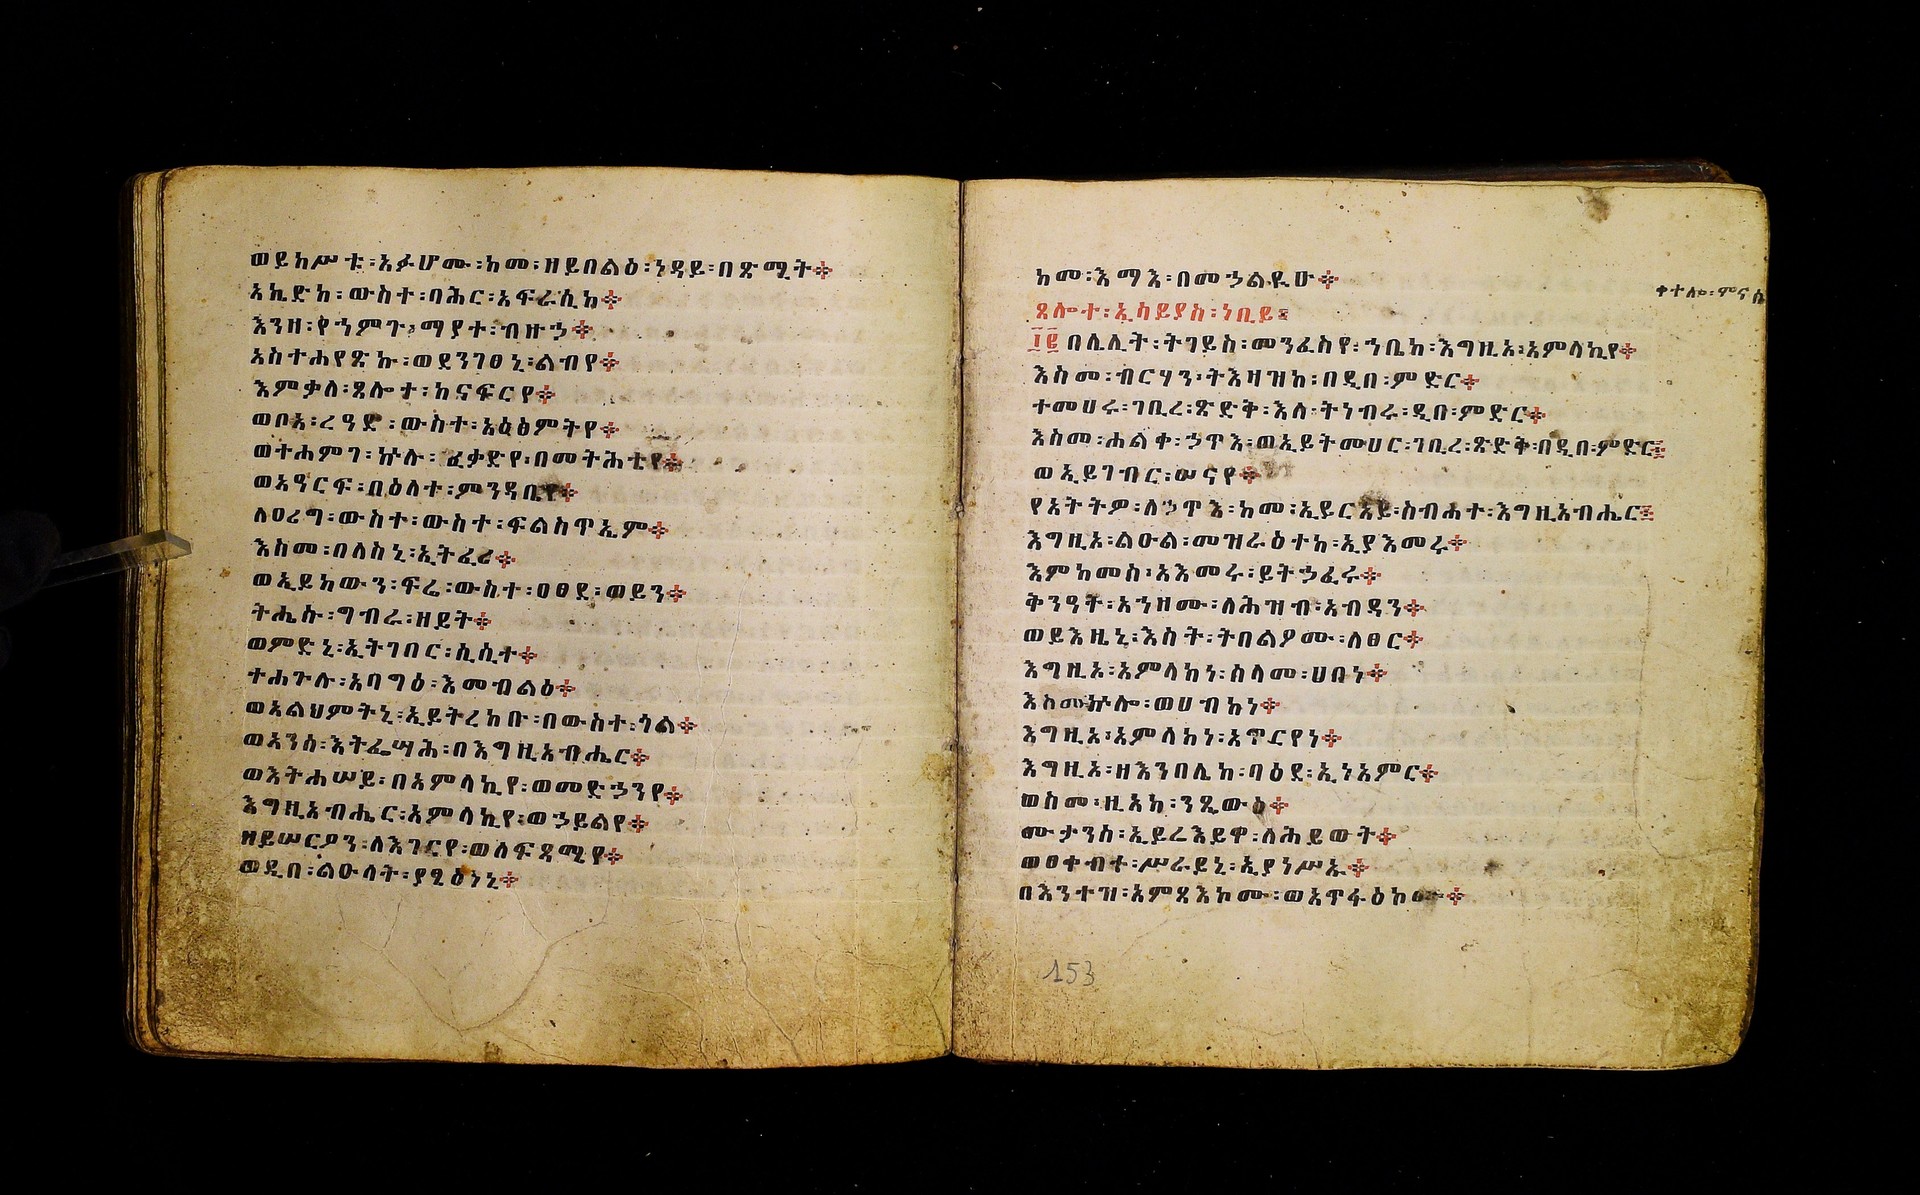 ወይከሥቱ፡አፉሆሙ፡ከመ፡ዘይበልዕ፡ነዳይ፡በጽሚት
አኪድከ፡ውስተ፡ባሕር፡አፍራሲከ
እንዘ፡የኀምጉ፡ማያተ፡ብዙኃ
አስተሐየጽኩ፡ወደንገፀኒ፡ልብየ
እምቃለ፡ጸሎተ፡ከናፍርየ
ወቦአ፡ረዓድ፡ውስተ፡አዕፅምትየ
ወተሐምገ፡ኵሉ፡ፈቃድየ፡በመትሕቲየ
ወአዓርፍ፡በዕለተ፡ምንዳቤየ
ለዐሪግ፡ውስተ፡ውስተ፡ፍልስጥኢም
እስመ፡በለስኒ፡ኢትፈሪ
ወኢይከውን፡ፍሬ፡ውስተ፡ዐፀደ፡ወይን
ትሔሱ፡ግብራ፡ዘይት
ወምድኒ፡ኢትገበር፡ሲሲተ
ተሐጉሉ፡አባግዕ፡እመብልዕ
ወአልህምትኒ፡ኢይትረከቡ፡በውስተ፡ጎል
ወአንሰ፡እትፌሣሕ፡በእግዚአብሔር
ወእትሐሠይ፡በአምላኪየ፡ወመድኃንየ
እግዚአብሔር፡አምላኪየ፡ወኃይልየ
ዘይሠርዖን፡ለእገርየ፡ወለፍጻሜየ
ወዲበ፡ልዑላት፡ያዒዕነኒ
ከመ፡እማእ፡በመኃልዪሁ
ቀተሎ፡ምናሴ
ጸሎተ፡ኢሳይያስ፡ነቢይ፤
፲፪ በሌሊት፡ትገይስ፡መንፈስየ፡ኀቤከ፡እግዚአ፡አምላኪየ
እስመ፡ብርሃን፡ትእዛዝከ፡በዲበ፡ምድር
ተመሀሩ፡ገቢረ፡ጽድቅ፡እለ፡ትነብሩ፡ዲበ፡ምድር
እስመ፡ሐልቀ፡ኃጥእ፡ወኢይትሙሀር፡ገቢረ፡ጽድቅ፡በዲበ፡ምድር
ወኢይገብር፡ሠናየ
የአትትዎ፡ለኃጥእ፡ከመ፡ኢይርአይ፡ስብሐተ፡እግዚአብሔር
እግዚአ፡ልዑል፡መዝራዕተከ፡ኢያእመሩ
እምከመሰ፡አእመሩ፡ይትኃፈሩ
ቅንዓት፡አኀዘሙ፡ለሕዝብ፡አብዳን
ወይእዜኒ፡እሳት፡ትበልዖሙ፡ለፀር
እግዚአ፡አምላከነ፡ሰላመ፡ሀበነ
እስመኵሎ፡ወሀብከነ
እግዚአ፡አምላከነ፡አጥርየነ
እግዚአ፡ዘእንበሌከ፡ባዕደ፡ኢነአምር
ወስመ፡ዚአከ፡ንጼውዕ
ሙታንሰ፡ኢይሬእይዋ፡ለሕይወት
ወዐቀብተ፡ሥራይኒ፡ኢያነሥኡ
በእንተዝ፡አምጻእኮሙ፡ወአጥፋዕኮሙ
153